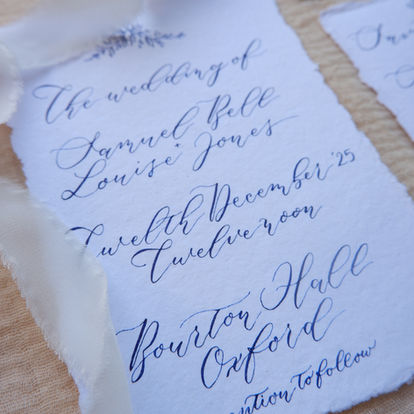 The wedding of
Samuel Bell
Louise Jones
Twelth December '25
Twelve noon
Bourton Hall
Oxford
to follow